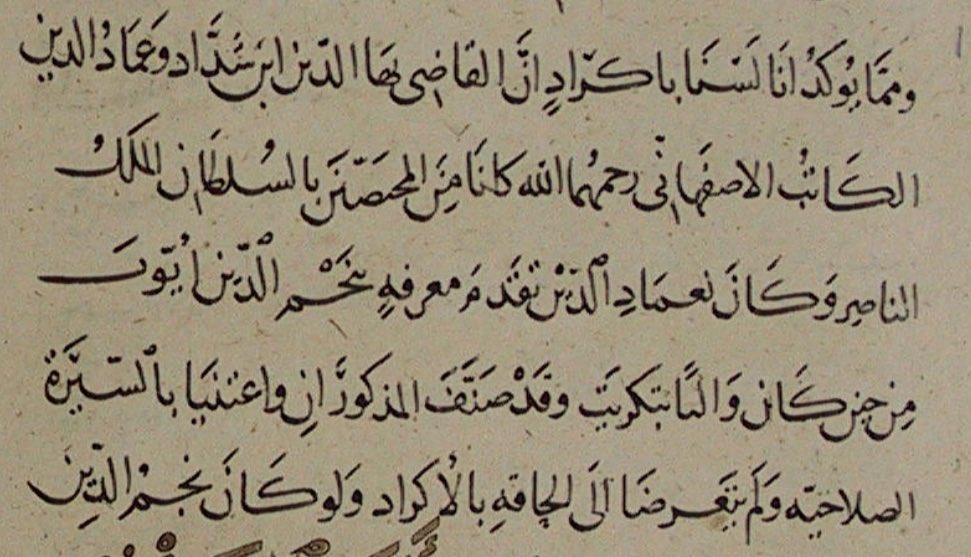 ومما يؤكد انا لسنا باكراد ان القاضى بها الدين ابن شداد وعماد الدين
الكاتب الاصفهانى رحمهما الله كانا من المختصين بالسلطان الملك
الناصر وكان لعماد الدين تقدم معرفه بنجم الدين ايوب
من حين كان واليا بتكريت وقد صنف المذكوران واعتنيا بالسيرة
الصلاحيه ولم يتعرضا الى الحاقه بالاكراد ولو كان نجم الدين